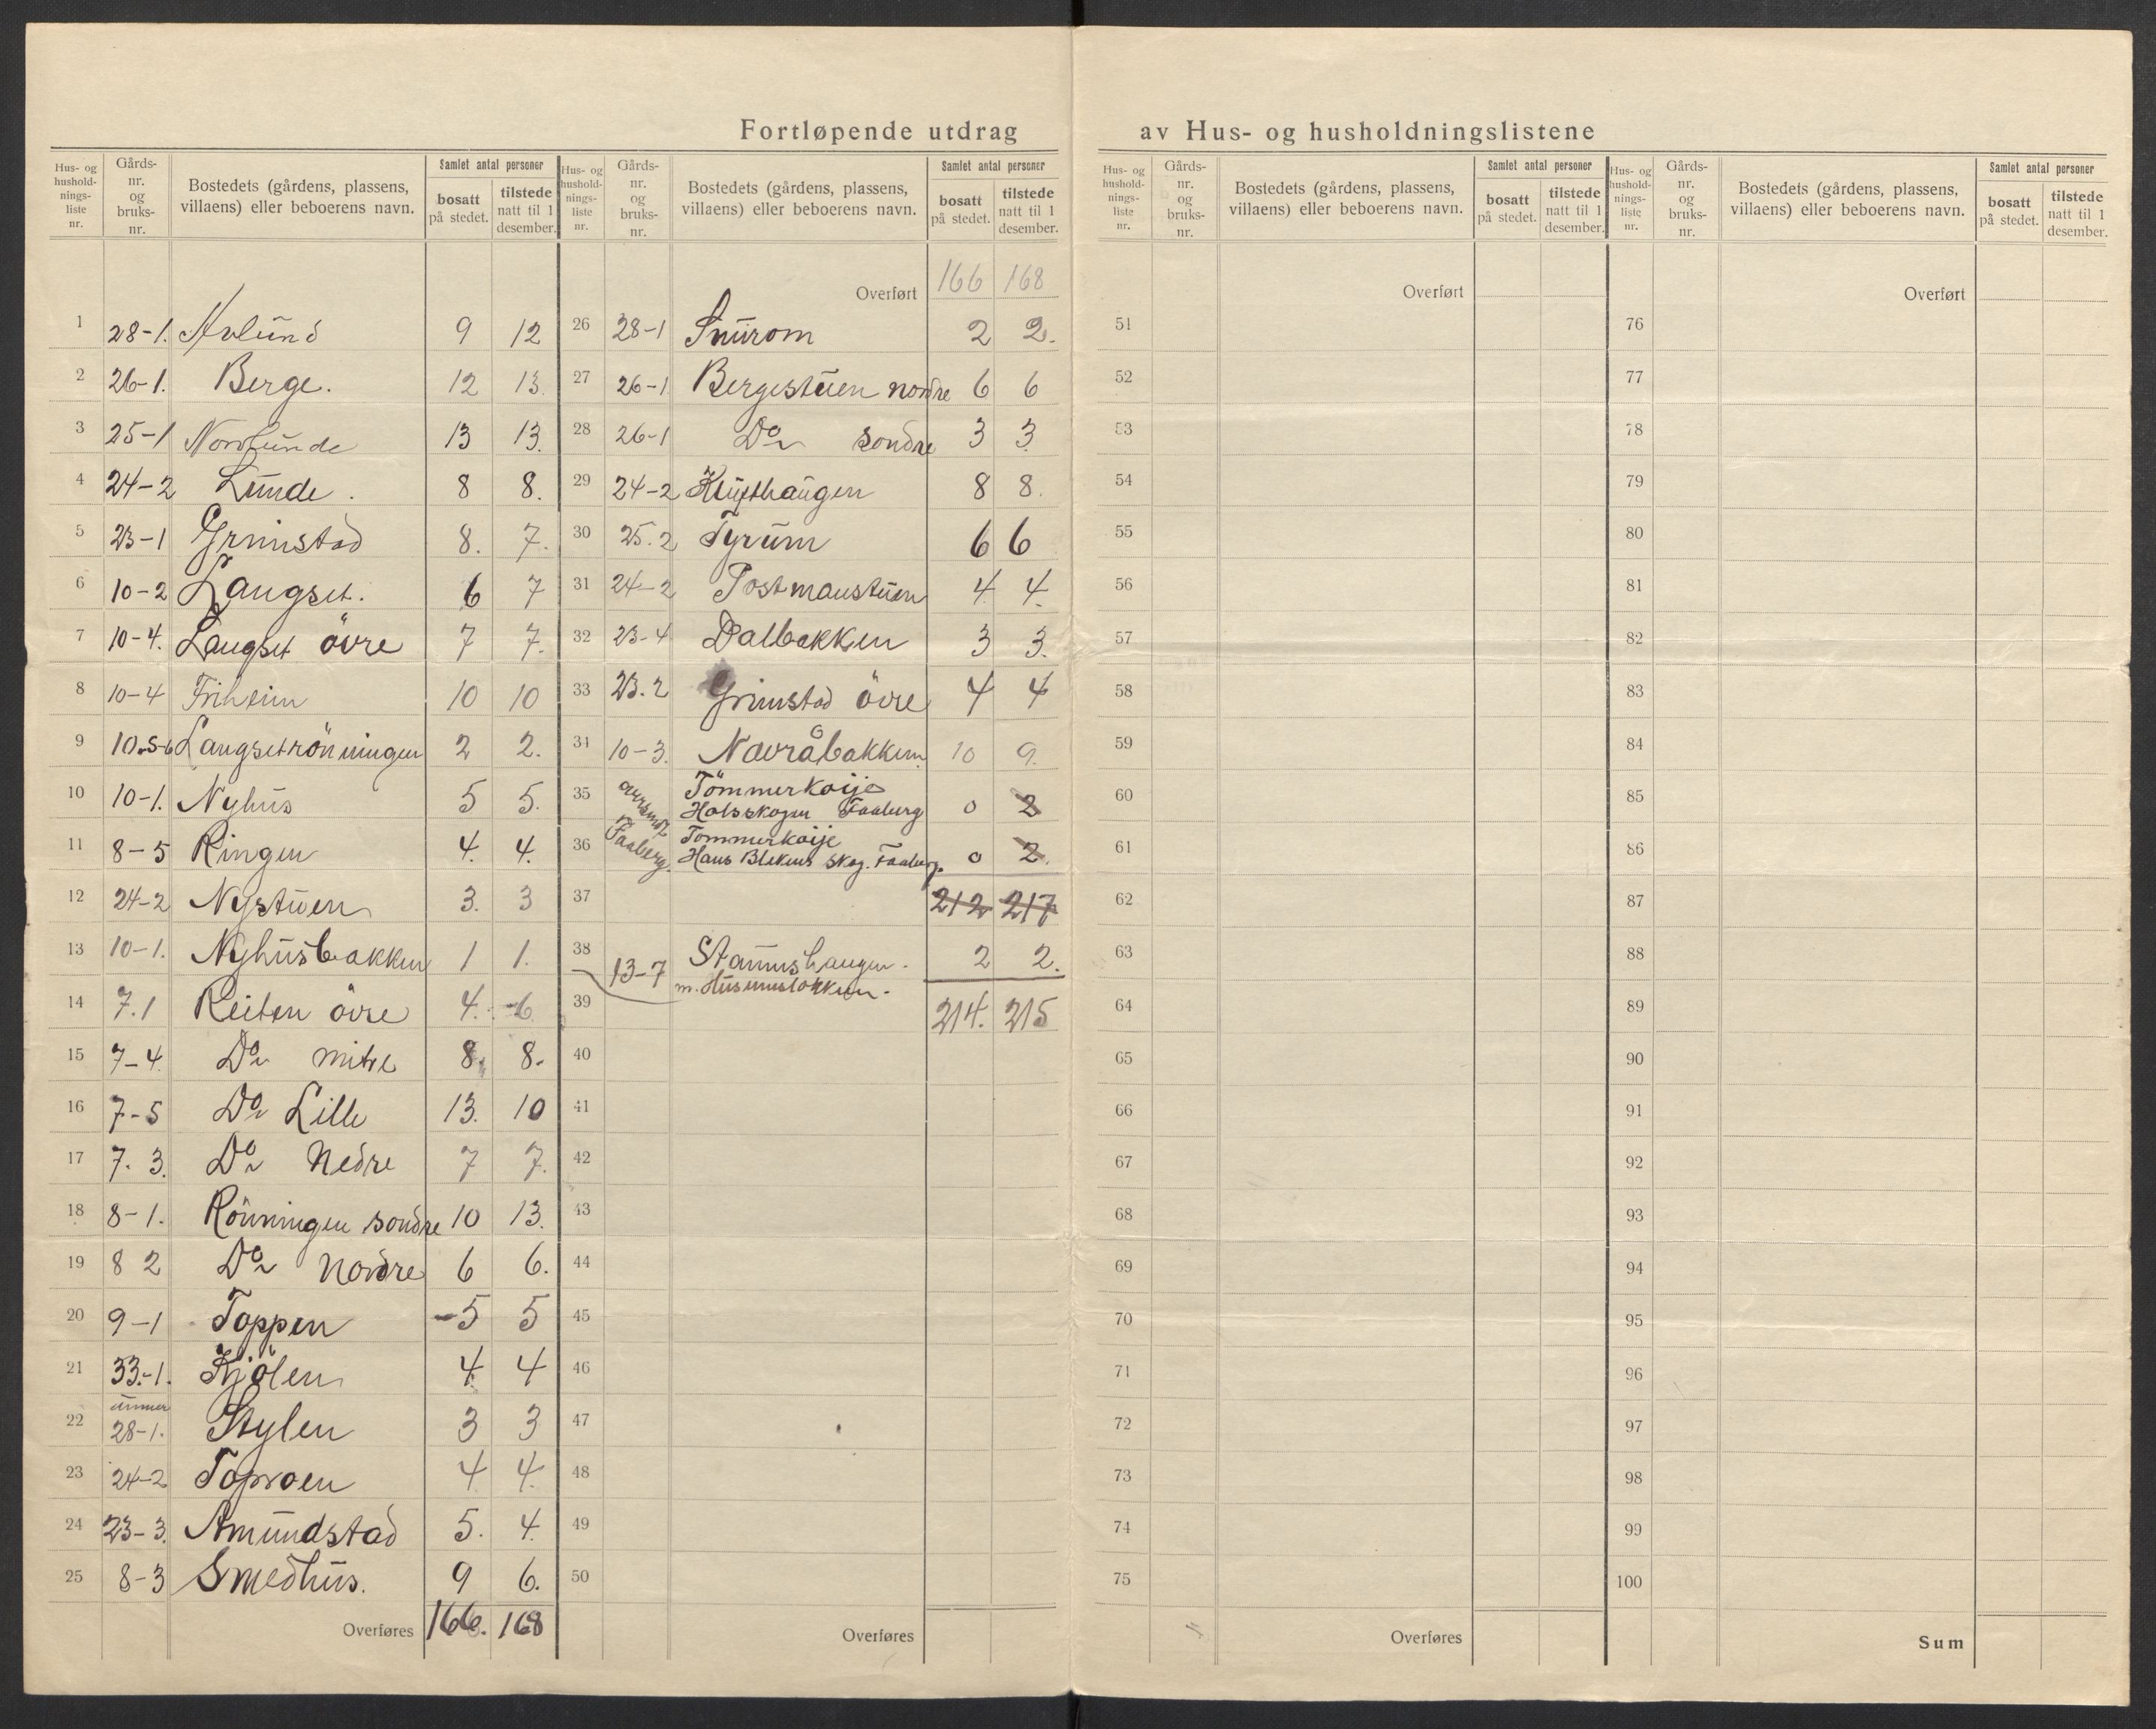 Fortløpende utdrag av Hus- og husholdningslistene
Hus- og hushold-nings-liste nr. Gårds-nr. og bruks-nr. Bostedets (gårdens, plassens, villaens) eller beboerens navn. Samlet antal personer bosatt på stedet. tilstede natt til 1 desember.
1 28-1. Avlund 9 12
2 26-1. Berge. 12 13
3 25-1 Nordlunde 13 13.
4 24-2 Lunde. 8 8.
5 23-1 Grimstad 8. 7.
6 10-2 Langset. 6 7
7 10-4. Langset övre 7 7.
8 10-4 Friheim 10 10
9 10.5-6 Langsetrönningen 2 2.
10 10-1. Nyhus 5 5.
11 8-5 Ringen 4. 4.
12 24-2 Nystuen 3. 3
13 10-1. Nyhusbakken 1 1.
14 7.1 Reiten övre 4. 6
15 7-4 Do mitre 8. 8.
16 7-5 Do Lille 13. 10
17 7.3. Do Nedre 7 7.
18 8-1. Rönningen söndre 10 13.
19 8 2 Do Nordre 6 6.
20 9-1 Toppen 5 5
21 33.-1. Kjölen 4 4
22 28-1. Stylen 3 3
23 24-2 Toproen 4 4.
24 23-3. Amundstad 5. 4.
25 8-3 Smedhus. 9 6.
Overføres 166. 168
Hus- og hushold-nings-liste nr. Gårds-nr. og bruks-nr. Bostedets (gårdens, plassens, villaens) eller beboerens navn. Samlet antal personer bosatt på stedet. tilstede natt til 1 desember.
Overført 166 168
26 28-1 Snurom 2 2.
27 26-1 Bergestuen nordre 6 6
28 26-1 Do sondre 3 3
29 24-2 Klufthaugen 8 8.
30 25.2 Tyrum 6 6
31 24-2 Postmanstuen 4 4.
32 23-4 Dalbakken 3 3.
33 23.2 Grimstad övre 4 4
34 10-3. Navråbakken 10 9.
35 Tömmerkoije
Holsskogen Faaberg 0 2
Faaberg.
36 Tommerkoije
Hans Blekens skog. Faaberg. 0 2.
37 212 217
38 13-7 Staumshaugen. 2 2.
39 214. 215
40
41
42
43
44
45
46
47
48
49
50
Overføres
Hus- og hushold-nings-liste nr. Gårds-nr. og bruks-nr. Bostedets (gårdens, plassens, villaens) eller beboerens navn. Samlet antal personer bosatt på stedet. tilstede natt til 1 desember.
Overført
51
52
53
54
55
56
57
58
59
60
61
62
63
64
65
66
67
68
69
70
71
72
73
74
75
Overføres
Hus- og hushold-nings-liste nr. Gårds-nr. og bruks-nr. Bostedets (gårdens, plassens, villaens) eller beboerens navn. Samlet antal personer bosatt på stedet. tilstede natt til 1 desember.
Overført
76
77
78
79
80
81
82
83
84
85
86
87
88
89
90
91
92
93
94
95
96
97
98
99
100
Sum